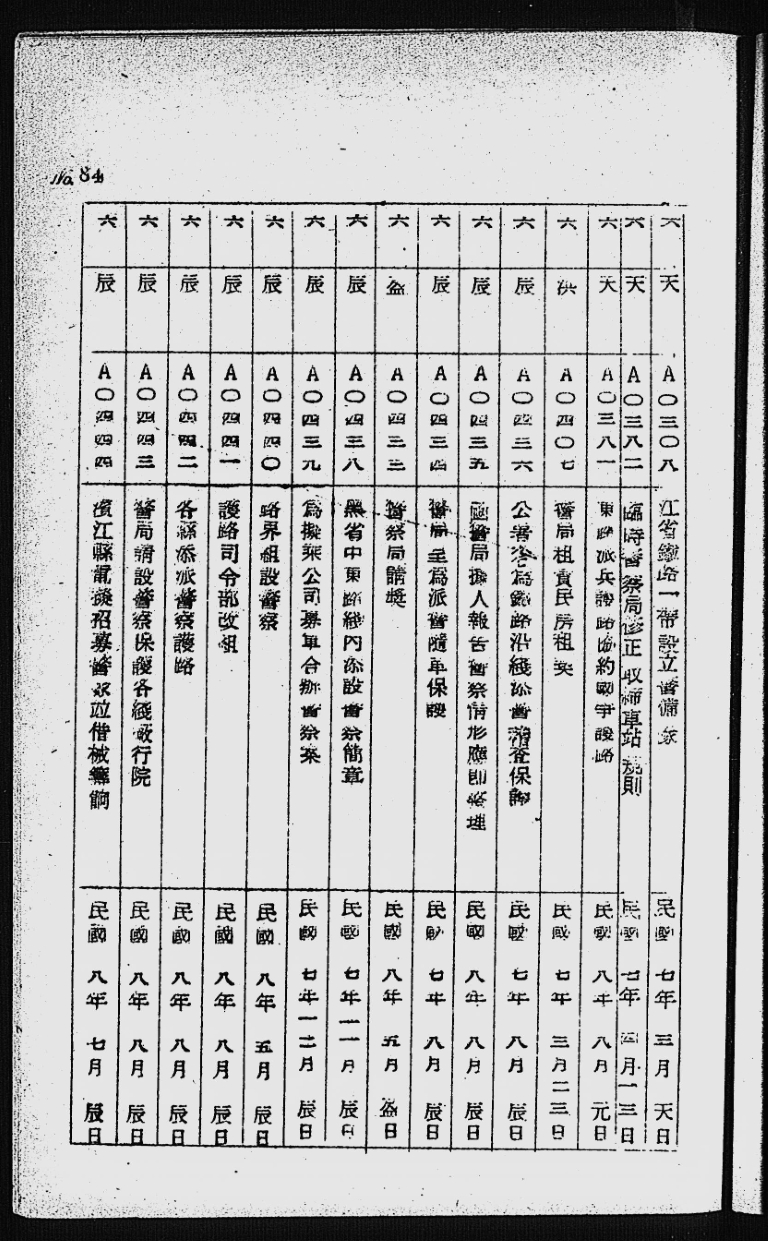 No. 84
六 天 A〇三〇八 江省鐵路一帶設立警備隊 民國 七年 三月 天日
六 天 A〇三八二 臨時警察局修正取締車站規則 民國 七年 月一三日
六 天 A〇三八一 東路派兵護路協約國爭護路 民國 八年 八月 元日
六 洪 A〇四〇七 警局租賃民房租契 民國 七年 三月二三日
六 辰 A〇四三六 公署咨為鐵路沿綫添警稽查保護 民國 七年 八月 辰日
六 辰 A〇四三五 國警局擬人報告警察情形應即整理 民國 八年 八月 辰日
六 辰 A〇四三四 警局呈為派警隨車保護 民國 七年 八月 辰日
六 盈 A〇四三三 警察局請獎 民國 八年 五月 盈日
六 辰 A〇四三八 黑省中東路綫內添設警察簡章 民國 七年一一月 辰日
六 辰 A〇四三九 為擬架公司募軍合辦警察案 民國 七年一二月 辰日
六 辰 A〇四四〇 路界組設警察 民國 八年 五月 辰日
六 辰 A〇四四一 護路司令部改組 民國 八年 八月 辰日
六 辰 A〇四四二 各縣添派警察護路 民國 八年 八月 辰日
六 辰 A〇四四三 警局請設警察保護各綫 行院 民國 八年 八月 辰日
六 辰 A〇四四四 濱江縣電擬招募警察並借械 民國 八年 七月 辰日